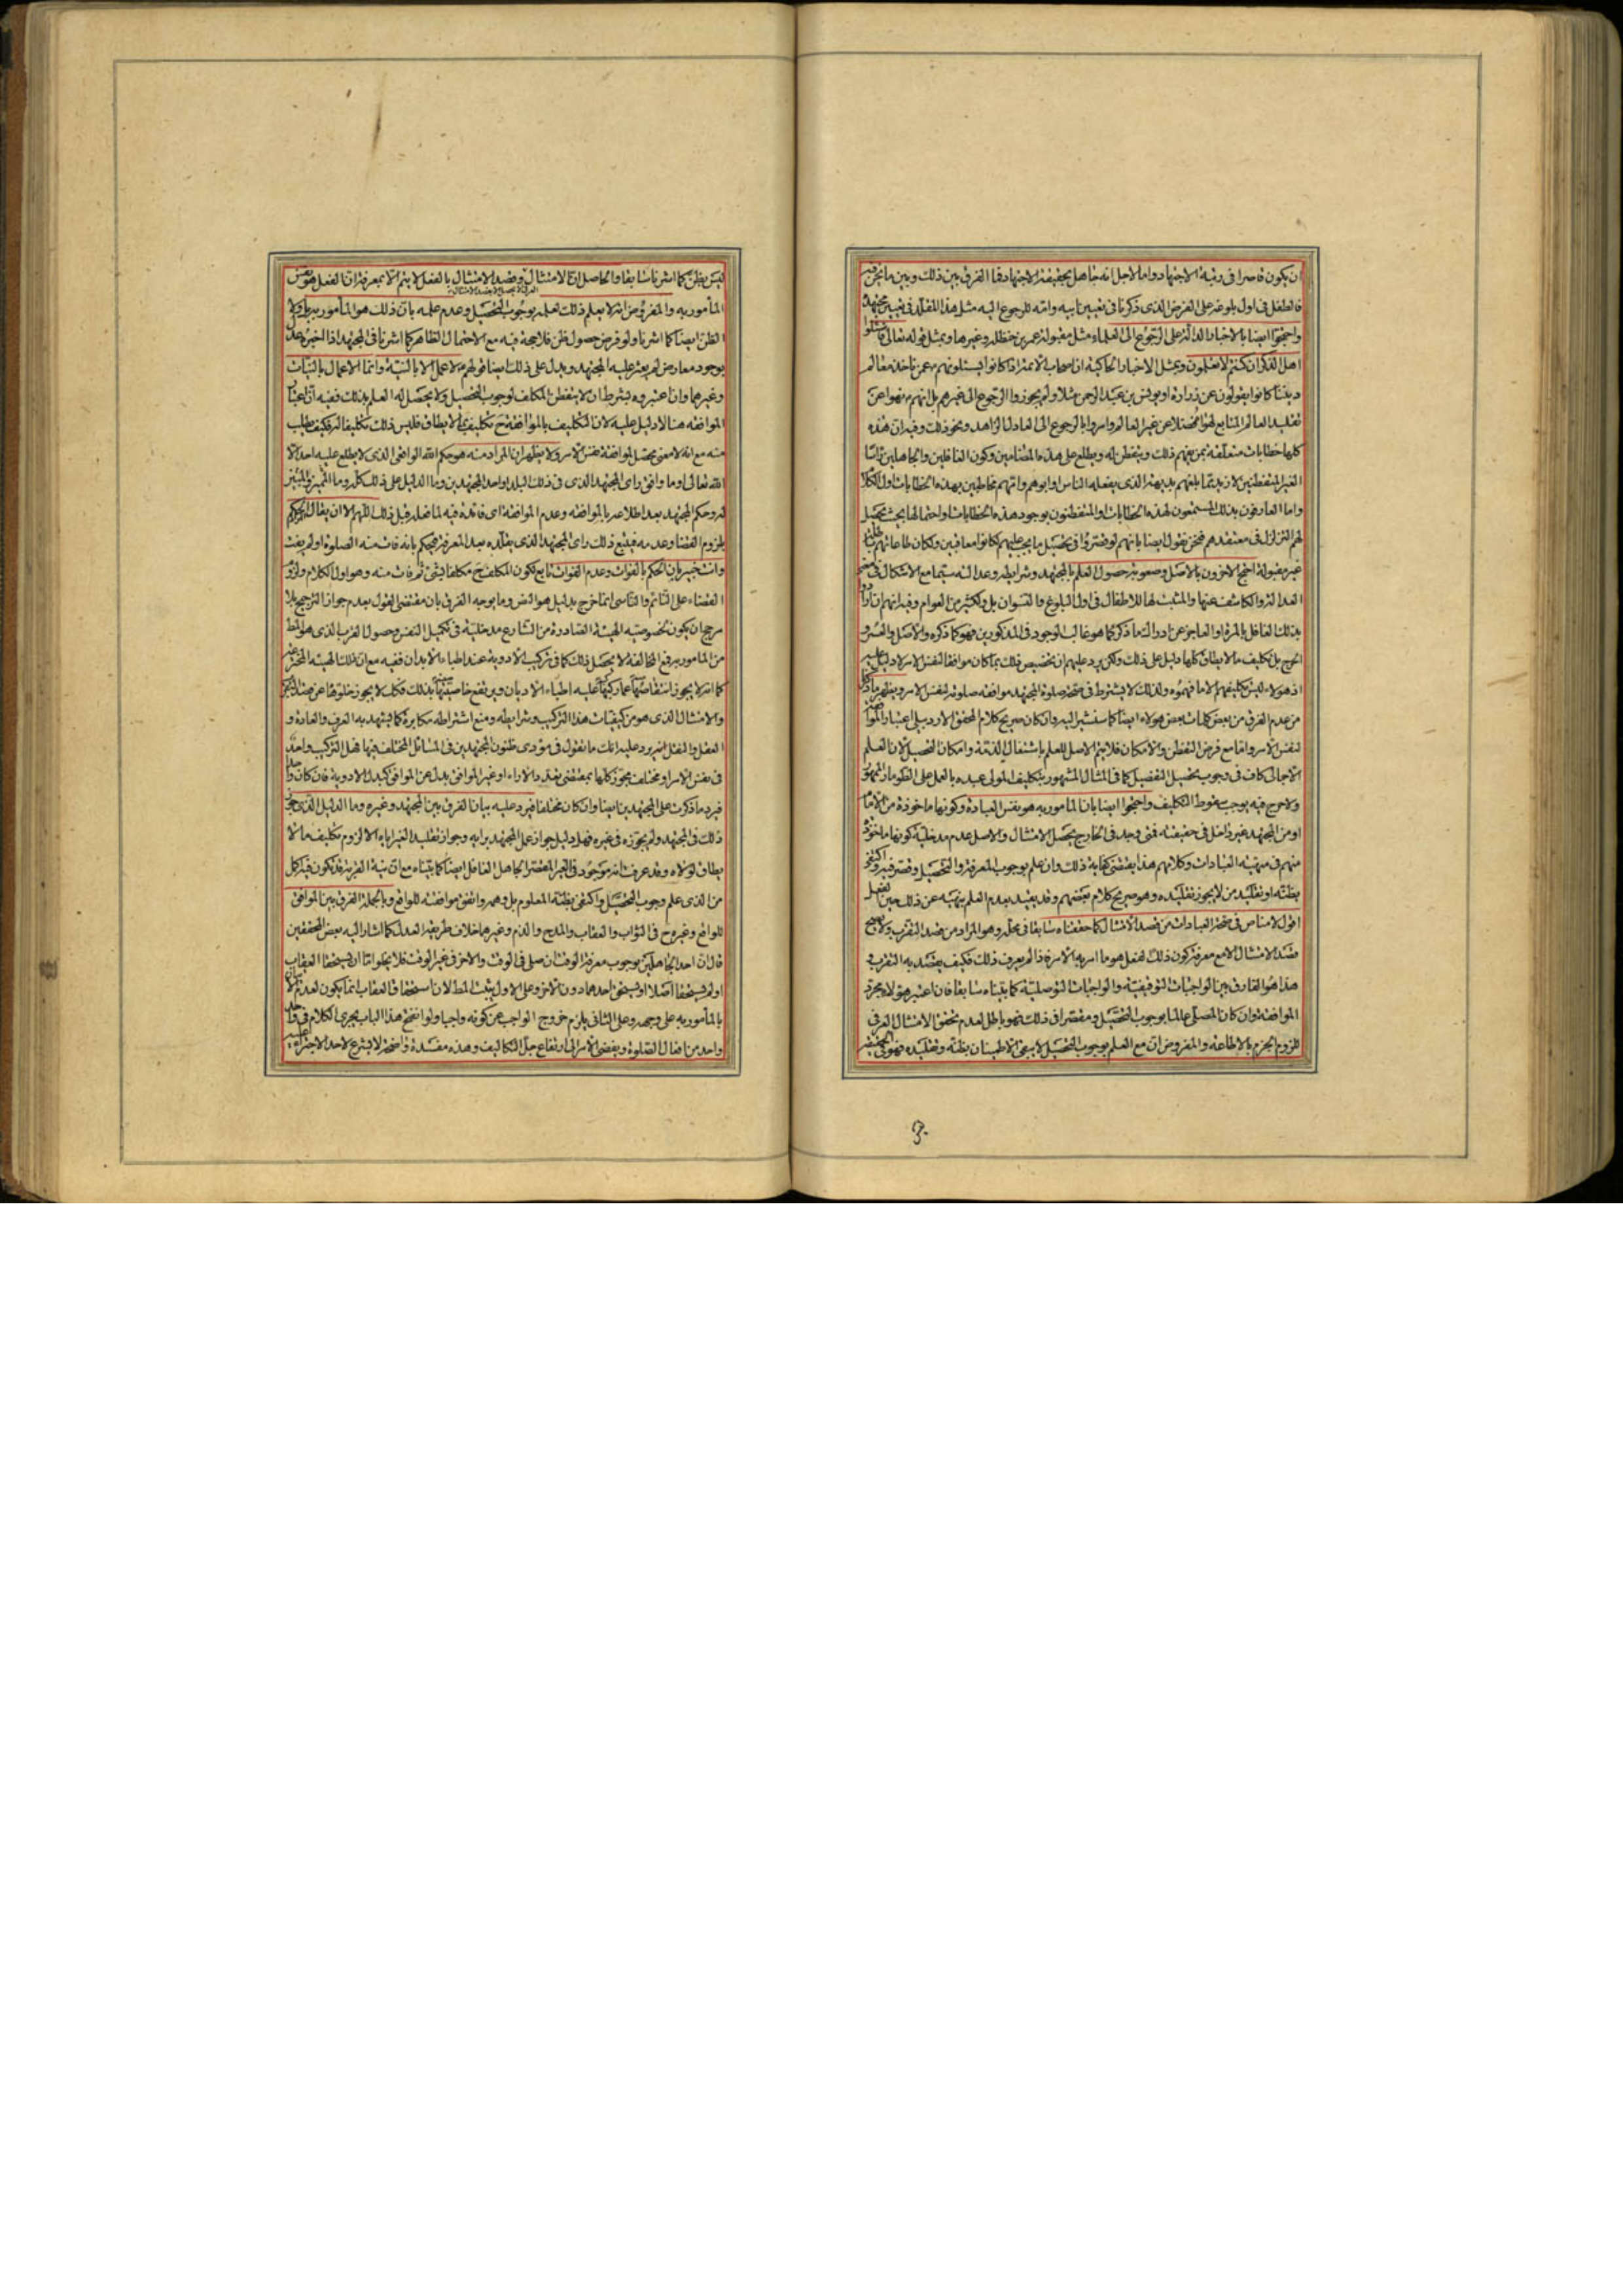 ان يكون قاصرا فى رتبة الاجتهاد واما لاجل انه جاهل بحقيقة الاجتهاد فما الفرق بين ذلك وبين ما نحن فيه
فالطفل فى اول بلوغه على الفرض الذى ذكرنا فى تعيين ابيه وامه للرجوع اليه مثل هذا المقلد فى تعيين مجتهده
واحتجوا ايضا بالاخبار الدالة على الرجوع الى العلماء مثل مقبولة عمر بن حنظلة وغيرها وبمثل قوله تعالى فاسئلوا
اهل الذكر ان كنتم لا تعلمون وبمثل الاخبار الحاكية ان اصحاب الائمة اذا كانوا يسئلونهم عمن ناخذ معالم
ديننا كانوا يقولون عن زرارة او يونس بن عبد الرحمن مثلا ولم يجوزوا الرجوع الى غيرهم بل انهم نهوا عن
تقليد العالم المتابع لهوا فضلا عن غير العالم وامروا بالرجوع الى العادل الزاهد ونحو ذلك وفيه ان هذه
كلها خطابات متعلقة بمن يفهم ذلك ويتفطن له ويطلع على هذه المضامين وكون الغافلين والجاهلين راسا
الغير المتفطنين لازيد مما بلغهم بديهة الذى يفعله الناس وابوهم وامهم مخاطبين بهذه الخطابات اول الكلام
واما العارفون بذلك المستمعون لهذه الخطابات والمتفطنون بوجود هذه الخطابات واحتمالها بحيث يحصل
لهم التزلزل فى معتقدهم فنحن نقول ايضا بانهم لو قصروا فى تحصيل ما يجب عليهم لكانوا معاقبين ولكان طاعاتهم
غير مقبولة احتج الاخرون بالاصل وصعوبة حصول العلم بالمجتهد وشرايطه وعدالته سيما مع الاشكال فى معنى
العدالة والكاشف عنها والمثبت لها للاطفال فى اول البلوغ والنسوان بل ولكثير من العوام وفيه انهم ان ارادوا
بذلك الغافل بالمرة او العاجز عن ادراك ما ذكر كما هو غالب الوجود فى المذكورين فهو كما ذكره والاصل والعسر و
الحرج بل تكليف ما لا يطاق كلها دليل على ذلك ولكن يرد عليهم ان تخصيص ذلك بما كان موافقا لنفس الامر لا دليل عليه
اذ هؤلاء ليس تكليفهم الا ما فهموه ولذلك لا يشترط فى صحة صلوة المجتهد موافقة صلوته لنفس الامر ويظهر ما ذكر
من عدم الفرق من بعض كلمات بعض هؤلاء ايضا كما سنشير اليه وان كان صريح كلام المحقق الاردبيلى اعتبار الموافقة
لنفس الامر واما مع فرض التفطن والامكان فلا يتم الاصل للعلم باشتغال الذمة وامكان التحصيل لان العلم
الاجمالى كاف فى وجوب تحصيل التفصيل كما فى المثال المشهور بتكليف المولى عبده بالعمل على الطومار المهور
ولا حرج فيه يوجب سقوط التكليف واحتجوا ايضا بان المامور به هو نفس العبادة وكونها ماخوذة من الامام
او من المجتهد غير داخل فى حقيقته فمتى وجد فى الخارج يحصل الامتثال والاصل عدم مدخلية كونها ماخوذة
منهم فى مهية العبادات وكلامهم هذا يقتضى كفاية ذلك وان علم بوجوب المعرفة والتحصيل وقصر فيه واكتفى
بظنه او تقليد من لا يجوز تقليده وهو صريح كلام بعضهم وقد يقيد بعدم العلم بنهيه عن ذلك حين الفعل
اقول لا مناص فى صحة العبادات من قصد الامتثال كما حققناه سابقا فى محله وهو المراد من قصد التقرب ولا يصح
قصد الامتثال الا مع معرفة كون ذلك الفعل هو ما امر به الامر فاذا لم يعرف ذلك فكيف يقصد به التقرب و
هذا هو الفارق بين الواجبات التوقيفية والواجبات التوصلية كما بيناه سابقا فان اعتبر هؤلاء مجرد
الموافقة وان كان المصلى عالما بوجوب التحصيل ومقصرا فى ذلك فهو باطل لعدم تحقق الامتثال العرفى
للزوم الجزم بالاطاعة والمفروض ان مع العلم بوجوب التحصيل لا يبقى الاطمينان بظنه وتقليده فهو فى الحقيقة
ليس بظن كما اشرنا سابقا والحاصل ان الامتثال وقصد الامتثال بالفعل لا يتم الا بمعرفة ان الفعل هو نفس
المأمور به والمفروض انه لا يعلم ذلك لعلمه بوجوب التحصيل وعدم علمه بان ذلك هو المأمور به بل ولا
الظن ايضا كما اشرنا ولو فرض حصول ظن فلا حجة فيه مع الاحتمال الظاهر كما اشرنا فى المجتهد اذا اخبره عدل
بوجود معارض لم يعثر عليه المجتهد ويدل على ذلك ايضا قولهم لا عمل الا بالنية وانما الاعمال بالنيات
وغيرهما وان اعتبروه بشرط ان لا يتفطن المكلف لوجوب التحصيل ولا يحصل له العلم بذلك ففيه ان اعتبار
الموافقة هنا لا دليل عليه لان التكليف بالموافقة ح تكليف بما لا يطاق فليس ذلك تكليفا له فكيف يطلب
منه مع انه لا معنى محصل لموافقة نفس الامر ولا يظهر ان المراد منه هو حكم الله الواقعى الذى لا يطلع عليه احد الا
الله تعالى او ما وافق راى المجتهد الذى فى ذلك البلد او احد المجتهدين وما الدليل على ذلك كله وما المميز والمبين
له وحكم المجتهد بعد اطلاعه بالموافقة وعدم الموافقة اى فائدة فيه لما فعله قبل ذلك اللهم الا ان يقال الحكم
بلزوم القضا وعدمه فيتبع ذلك راى المجتهد الذى يقلده بعد المعرفة فيحكم بانه فات منه الصلوة او لم يفت
وانت خبير بان الحكم بالفوات وعدم الفوات تابع لكون المكلف ح مكلفا بشئ ثم فات منه وهو اول الكلام ولزوم
القضاء على النائم والناسى انما خرج بدليل هو النص وما يوجبه الفرق بان مقتضى القول بعدم جواز الترجيح بلا
مرجح ان يكون لخصوصية الهيئة الصادرة من الشارع مدخلية فى تكميل النفس وحصول القرب الذى هو المط
من المامور به فمع المخالفة لا يحصل ذلك كما فى تركيب الادوية عند اطباء الابدان ففيه مع ان ذلك الهيئة المخترعة
كما انه لا يجوز انتقاصها عما ركبها عليه اطباء الاديان ويرتفع خاصيتها بذلك فكك لا يجوز خلوها عن قصد التقرب
والامتثال الذى هو من كيفيات هذا التركيب وشرايطه ومنع اشتراطه مكابرة كما يشهد به العرف والعادة و
العقل والنقل انه يرد عليه انك ما تقول فى مؤدى ظنون المجتهدين فى المسائل المختلف فيها فهل التركيب واحد
فى نفس الامر او مختلف يجوز كلها بمقتضى تعدد الاراء او غير الموافق بدل عن الموافق كبدل الادوية فان كان واحدا
فيرد ما ذكرت على المجتهدين ايضا وان كان مختلفا فيرد عليه بيان الفرق بين المجتهد وغيره وما الدليل الذى جوز
ذلك فى المجتهد ولم يجوزه فى غيره فهل دليل جواز عمل المجتهد برايه وجواز تقليد الغير اياه الا لزوم تكليف ما لا
يطاق لولاه وقد عرفت انه موجود فى الغير المقصر الجاهل الغافل ايضا كما بيناه مع ان نية القربة قد تكون فيه اكمل
من الذى علم وجوب التحصيل واكتفى بظنه المعلوم بل وهمه واتفق موافقته للواقع وبالجملة الفرق بين الموافق
للواقع وغيره ح فى الثواب والعقاب والمدح والذم وغيرهما خلاف طريقة العدل كما اشار اليه بعض المحققين
قال ان احد الجاهلين بوجوب معرفة الوقت ان صلى فى الوقت والاخر فى غير الوقت فلا يخلو اما ان يستحقا العقاب
او لم يستحقا اصلا او يستحق احدهما دون الاخر وعلى الاول يثبت المط لان استحقاق العقاب انما يكون لعدم الاتيان
بالمأمور به على وجهه وعلى الثانى يلزم خروج الواجب عن كونه واجبا ولو انفتح هذا الباب يجرى الكلام فى واحد
واحد من افعال الصلوة ويفضى الامر الى ارتفاع جل التكاليف وهذه مفسدة واضحة لا يشرع لاحد الاجتراء عليه